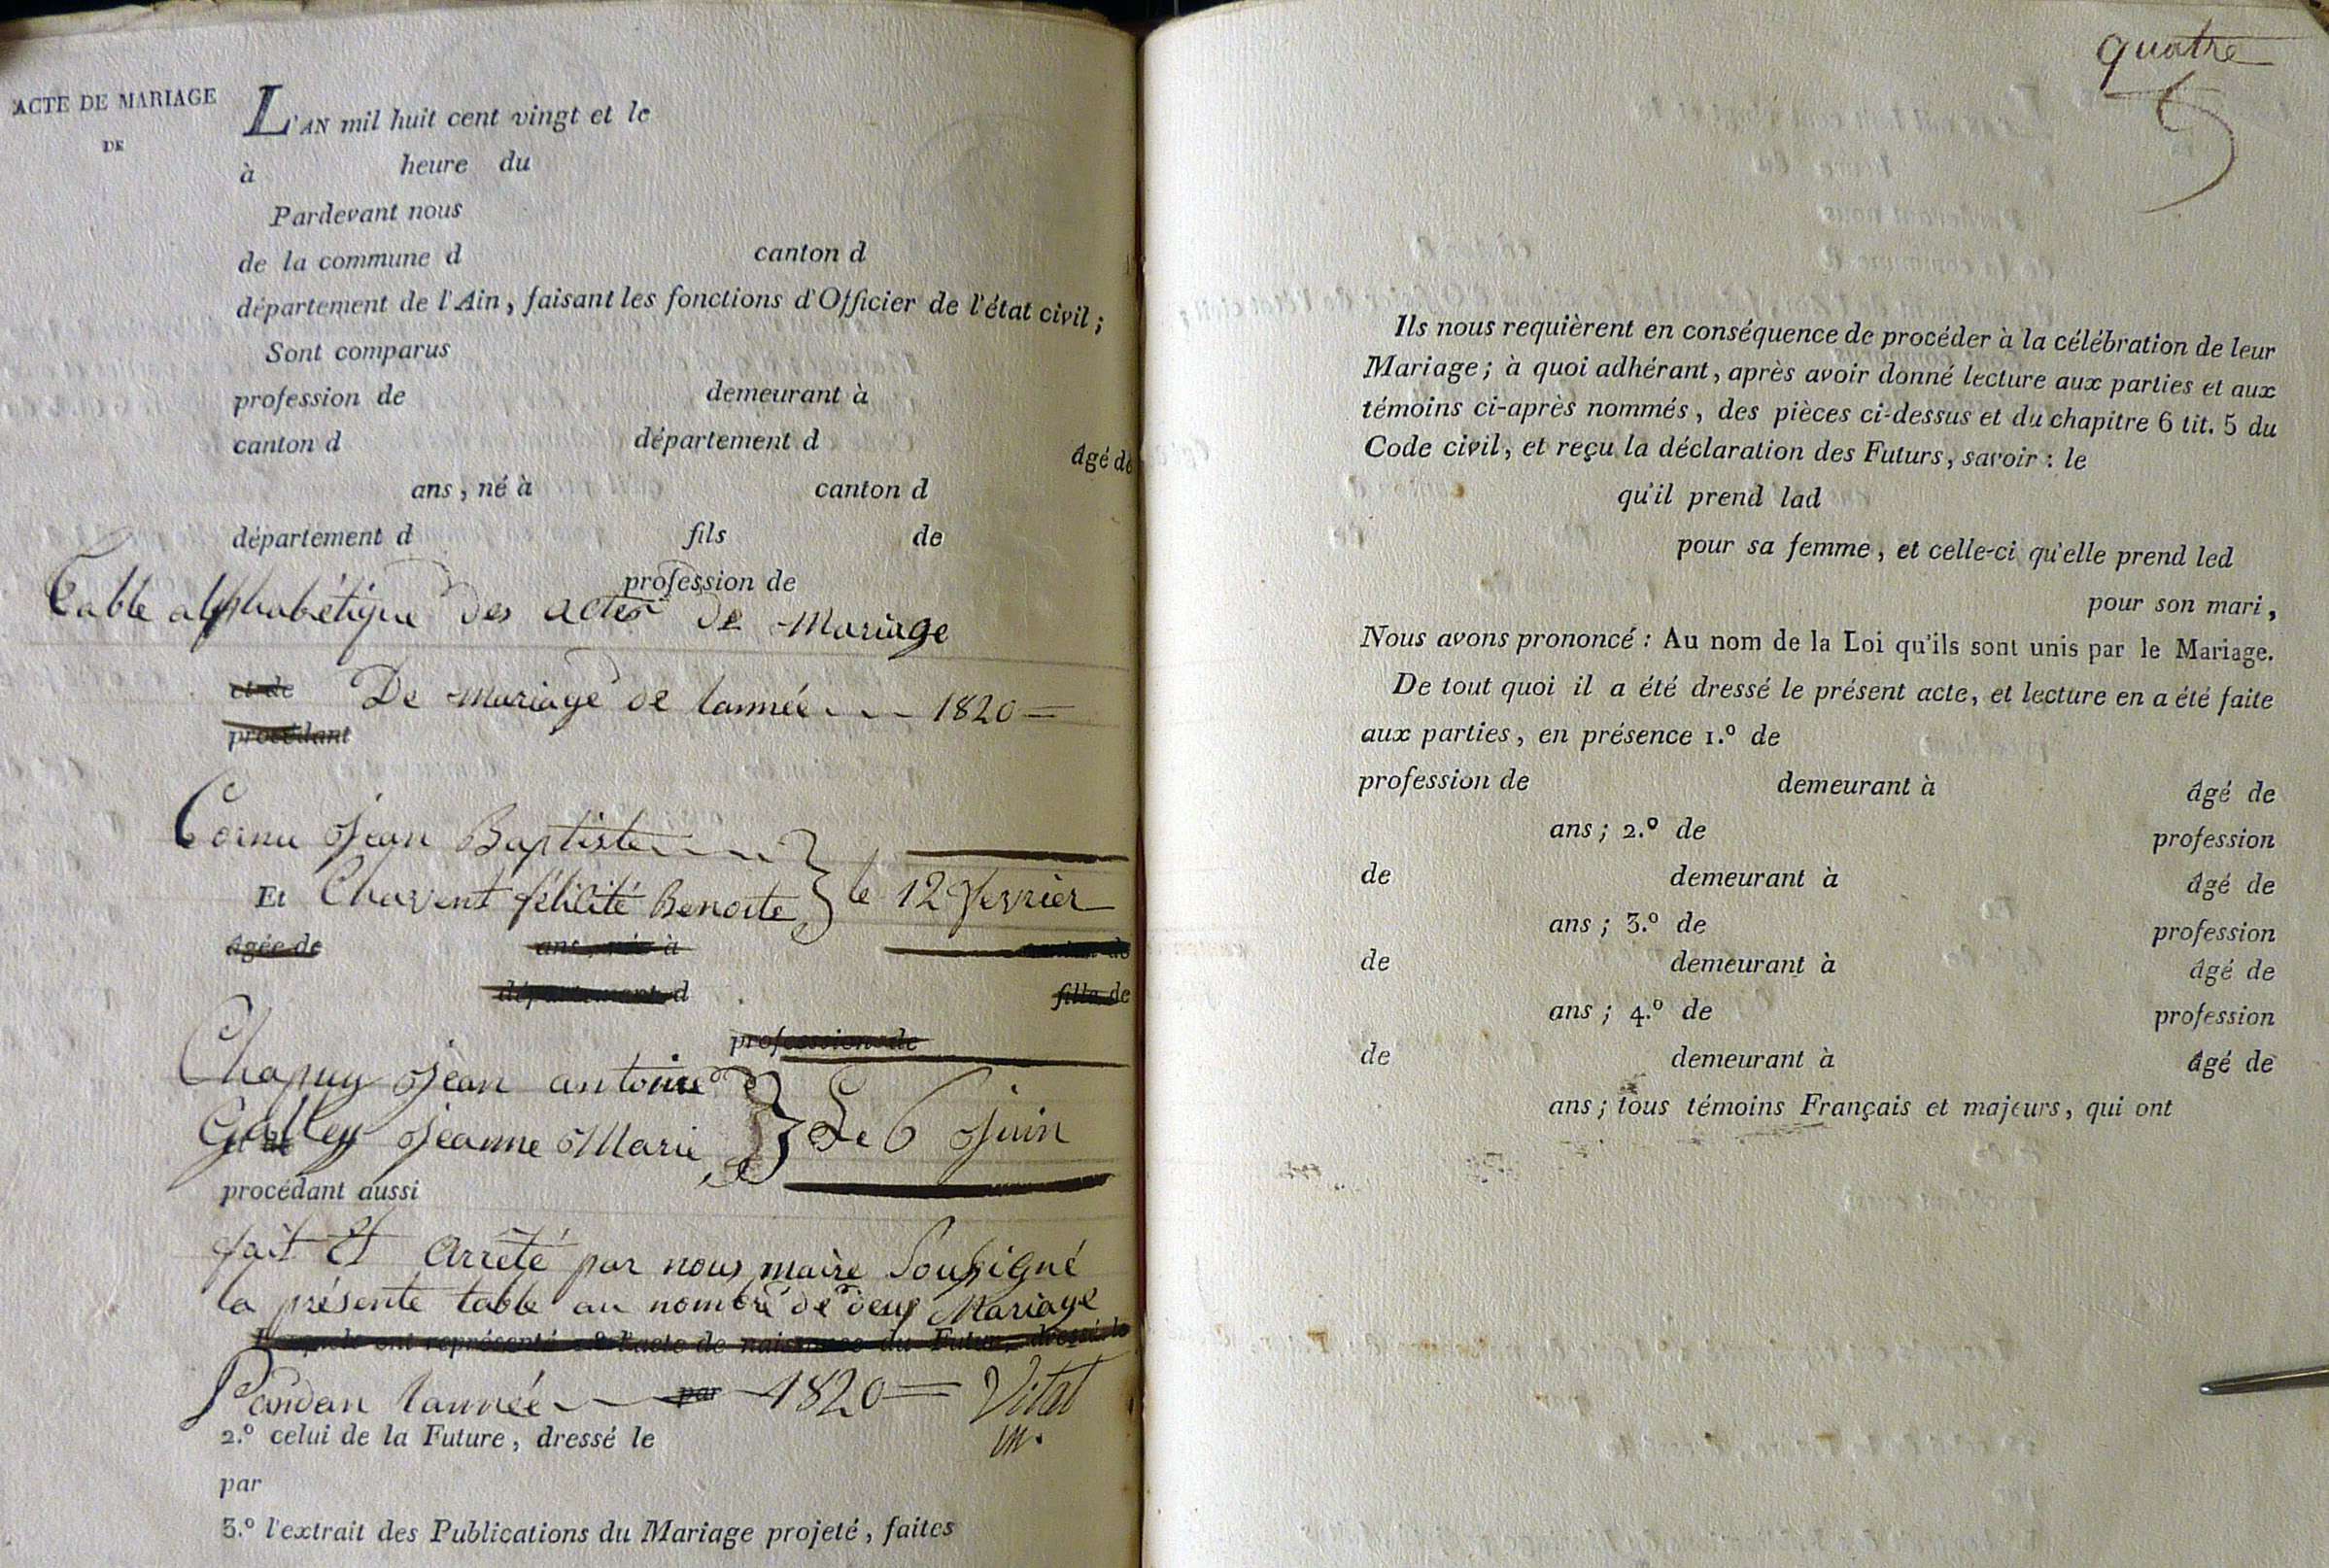 ACTE DE MARIAGE
DE
L'AN mil huit cent vingt et le
à heure du
Pardevant nous
de la commune d canton d
département de l'Ain, faisant les fonctions d'Officier de l'état civil;
Sont comparus
profession de demeurant à
canton d département d âgé de
ans, né à canton d
département d fils de
profession de
Table alphabétique des actes de Mariage
et de De Mariage de lannée 1820
procédant
Cornu Jean Baptiste
Et Chavent félicité Benoite le 12 février
âgée de ans, née à canton de
département d fille de
profession de
Chapuy Jean antoine
et de Galley Jeanne Marie Le 6 Juin
procédant aussi
fait Et Arrêté par nous maire Soussigné
la présente table au nombre de deux Mariage
Lesquels ont représenté 1.º l'acte de naissance du Futur, dressé le
Pandan lannée par 1820 Vital
m.
2.º celui de la Future, dressé le
par
3.º l'extrait des Publications du Mariage projeté, faites
quatre
Ils nous requièrent en conséquence de procéder à la célébration de leur
Mariage; à quoi adhérant, après avoir donné lecture aux parties et aux
témoins ci-après nommés, des pièces ci-dessus et du chapitre 6 tit. 5 du
Code civil, et reçu la déclaration des Futurs, savoir: le
qu'il prend lad
pour sa femme, et celle-ci qu'elle prend led
pour son mari,
Nous avons prononcé: Au nom de la Loi qu'ils sont unis par le Mariage.
De tout quoi il a été dressé le présent acte, et lecture en a été faite
aux parties, en présence 1.º de
profession de demeurant à âgé de
ans; 2.º de profession
de demeurant à âgé de
ans; 3.º de profession
de demeurant à âgé de
ans; 4.º de profession
de demeurant à âgé de
ans; tous témoins Français et majeurs, qui ont